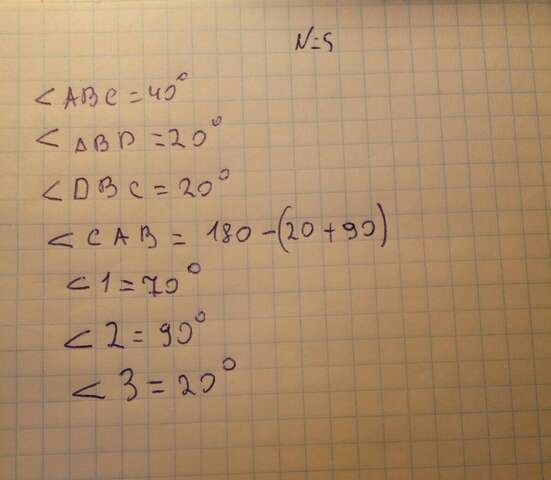 N=5
<ABC=40°
<ABD=20°
<DBC=20°
<CAB=180-(20+90)
<1=70°
<2=90°
<3=20°